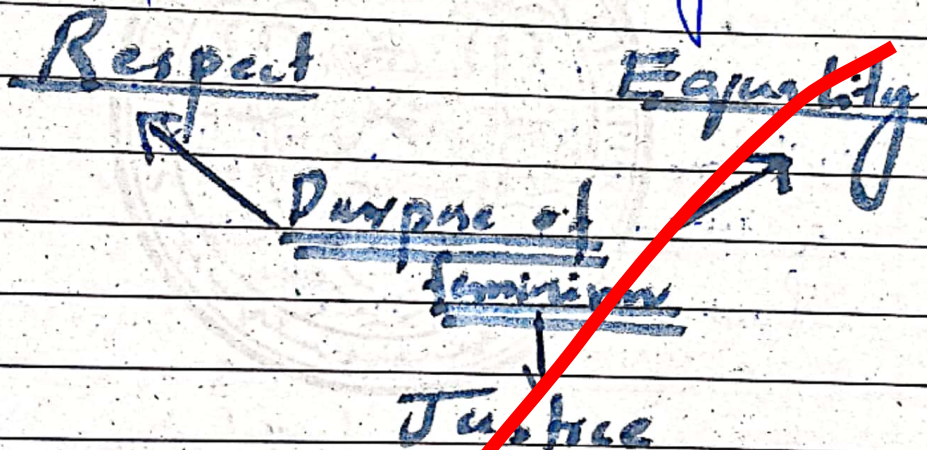 Respect
Equality
Purpose of
feminism
Justice